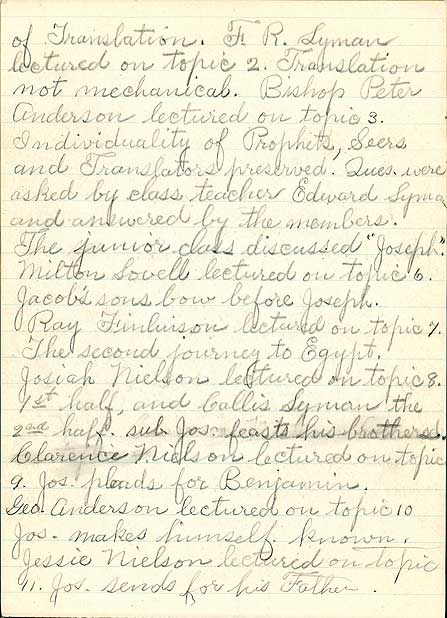 of Translation. F. R. Lyman
lectured on topic 2. Translation
not mechanical. Bishop Peter
Anderson lectured on topic 3.
Individuality of Prophets, Seers
and Translators preserved. Ques. were
asked by class teacher Edward Lyma
and answered by the members.
The junior class discussed "Joseph".
Milton Lovell lectured on topic 6.
Jacob's sons bow before Joseph.
Ray Finlinson lectured on topic 7.
The second journey to Egypt.
Josiah Nielson lectured on topic 8.
1st half, and Callis Lyman the
2nd half. sub Jos. feasts his brothers.
Clarence Nielson lectured on topic
9. Jos. pleads for Benjamin.
Geo. Anderson lectured on topic 10
Jos. makes himself known.
Jessie Nielson lectured on topic
11. Jos. sends for his Father.